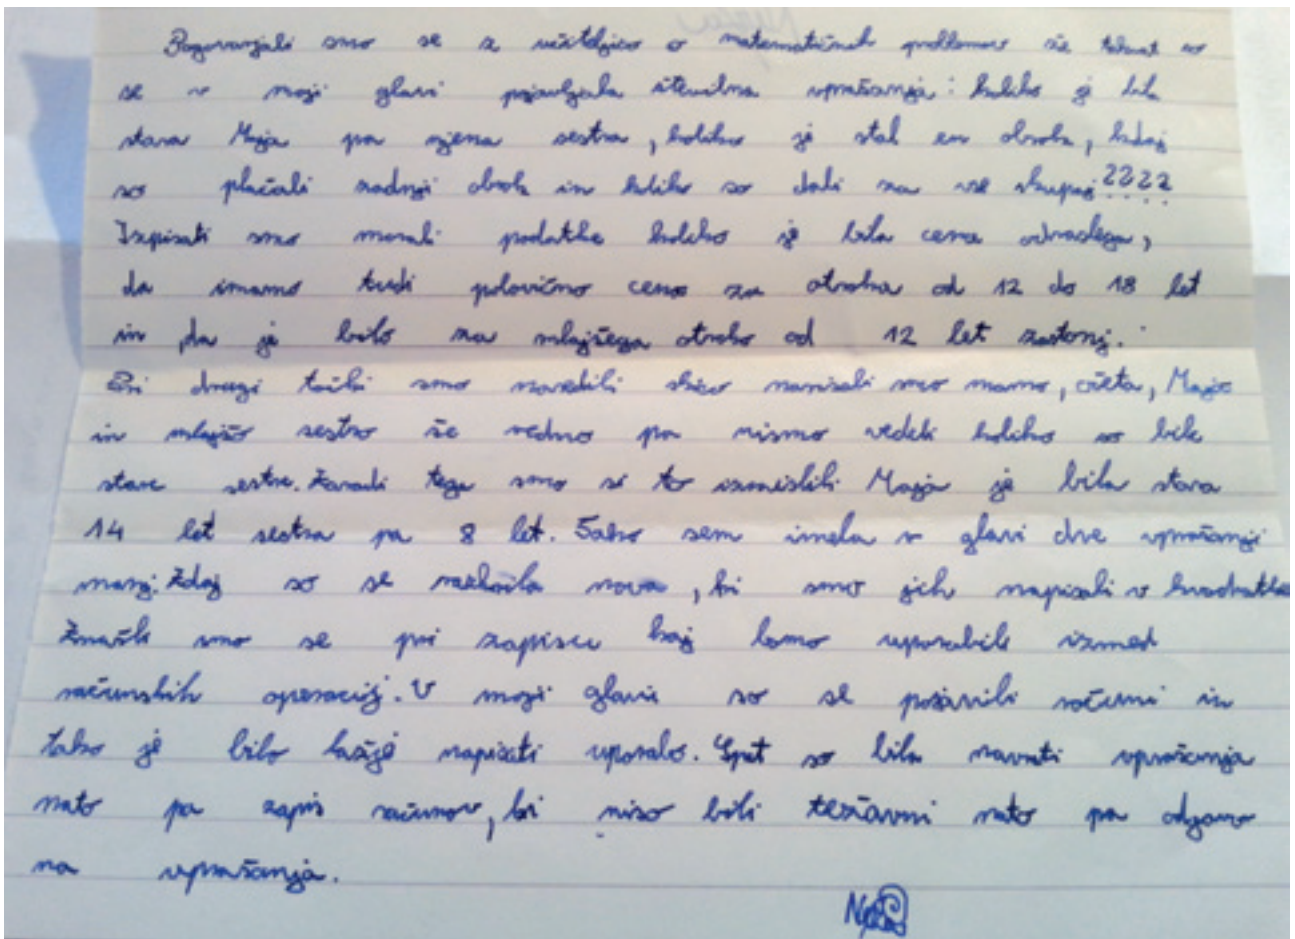 Pogovarjali smo se z učiteljico o matematičnih problemov že takrat so
se v moji glavi pojavljala številna vprašanja: koliko je bila
stara Maja pa njena sestra, koliko je stal en obrok, kdaj
so plačali zadnji obrok in koliko so dali za vse skupaj????
Izpisati smo morali podatke koliko je bila cena odraslega,
da imamo tudi polovično ceno za otroka od 12 do 18 let
in da je bilo za mlajšega otroka od 12 let zastonj.
Pri drugi točki smo naredili skico narisali smo mamo, očeta, Majo
in mlajšo sestro še vedno pa nismo vedeli koliko so bile
stare sestre. Zaradi tega smo si to izmislili Maja je bila stara
14 let sestra pa 8 let. Tako sem imela v glavi dve vprašanji
manj. Zdaj so se nova, ki smo jih napisali v kvadratke
smo se pri zapisu kaj bomo uporabili izmed
računskih operacij. V moji glavi so se pojavili računi in
tako je bilo lažje napisati uporabo. Spet so bila vprašanja
nato pa zapis računov, ki niso bili težavni nato pa odgovor
na vprašanja.